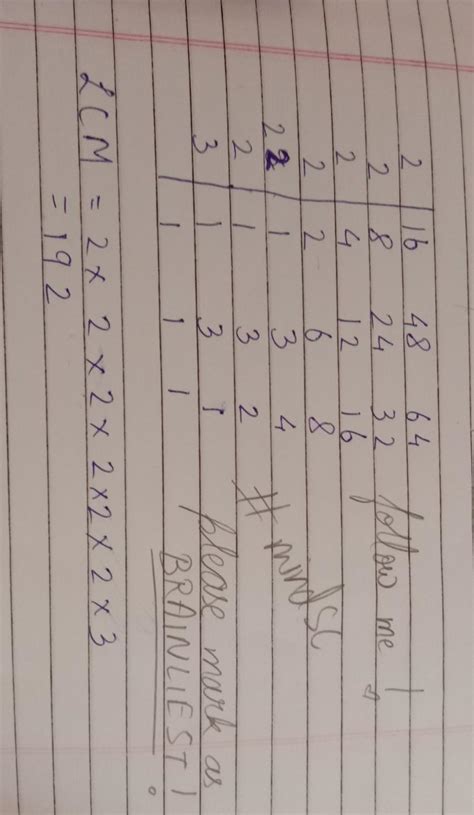 2 | 16 48 64
2 | 8 24 32 follow me !
2 | 4 12 16
2 | 2 6 8
2 2 | 1 3 4 #
2 | 1 3 2
3 | 1 3 1 please mark as
1 1 1 BRAINLIEST !
LCM = 2 × 2 × 2 × 2 × 2 × 2 × 3
= 192